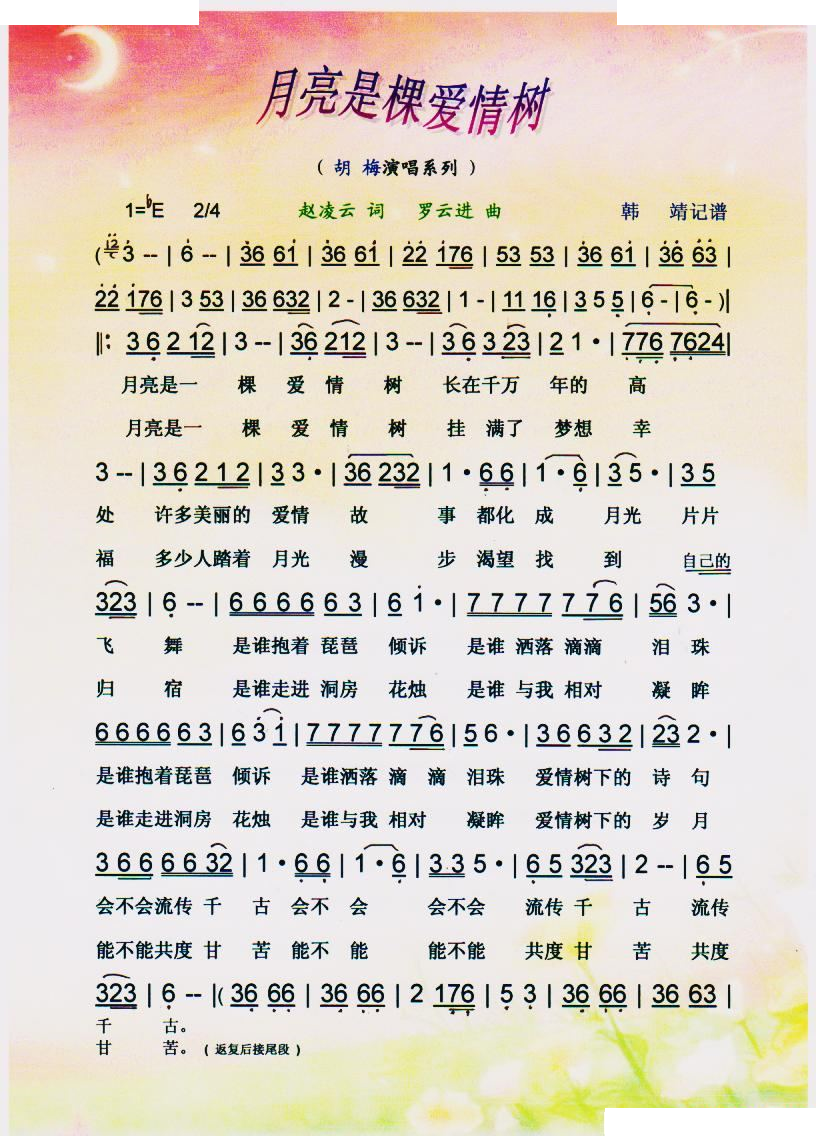 月亮是棵爱情树
（ 胡 梅演唱系列 ）
1=♭E 2/4 赵凌云 词 罗云进 曲 韩 靖记谱
( 12 3 -- | 6 -- | 36 61 | 36 61 | 22 176 | 53 53 | 36 61 | 36 63 |
22 176 | 3 53 | 36 632 | 2 - | 36 632 | 1 - | 11 16 | 3 5 5 | 6 - | 6 - )|
||: 3 6 2 12 | 3 -- | 36 212 | 3 -- | 3 6 3 23 | 2 1 • | 776 7624 |
月亮是一 棵 爱 情 树 长在千万 年的 高
月亮是一 棵 爱 情 树 挂 满了 梦想 幸
3 -- | 3 6 2 1 2 | 3 3 • | 36 232 | 1 • 6 6 | 1 • 6 | 3 5 • | 3 5
处 许多美丽的 爱情 故 事 都化 成 月光 片片
福 多少人踏着 月光 漫 步 渴望 找 到 自己的
323 | 6 -- | 6 6 6 6 6 3 | 6 1 • | 7 7 7 7 7 7 6 | 56 3 • |
飞 舞 是谁抱着 琵琶 倾诉 是谁 洒落 滴滴 泪 珠
归 宿 是谁走进 洞房 花烛 是谁 与我 相对 凝 眸
6 6 6 6 6 3 | 6 3 1 | 7 7 7 7 7 7 6 | 5 6 • | 3 6 6 3 2 | 23 2 • |
是谁抱着琵琶 倾诉 是谁洒落 滴 滴 泪珠 爱情树下的 诗 句
是谁走进洞房 花烛 是谁与我 相对 凝眸 爱情树下的 岁 月
3 6 6 6 6 32 | 1 • 6 6 | 1 • 6 | 3 3 5 • | 6 5 323 | 2 -- | 6 5
会不会流传 千 古 会不 会 会不会 流传 千 古 流传
能不能共度 甘 苦 能不 能 能不能 共度 甘 苦 共度
323 | 6 -- |( 36 66 | 36 66 | 2 176 | 5 3 | 36 66 | 36 63 |
千 古。
甘 苦。 ( 返复后接尾段 )